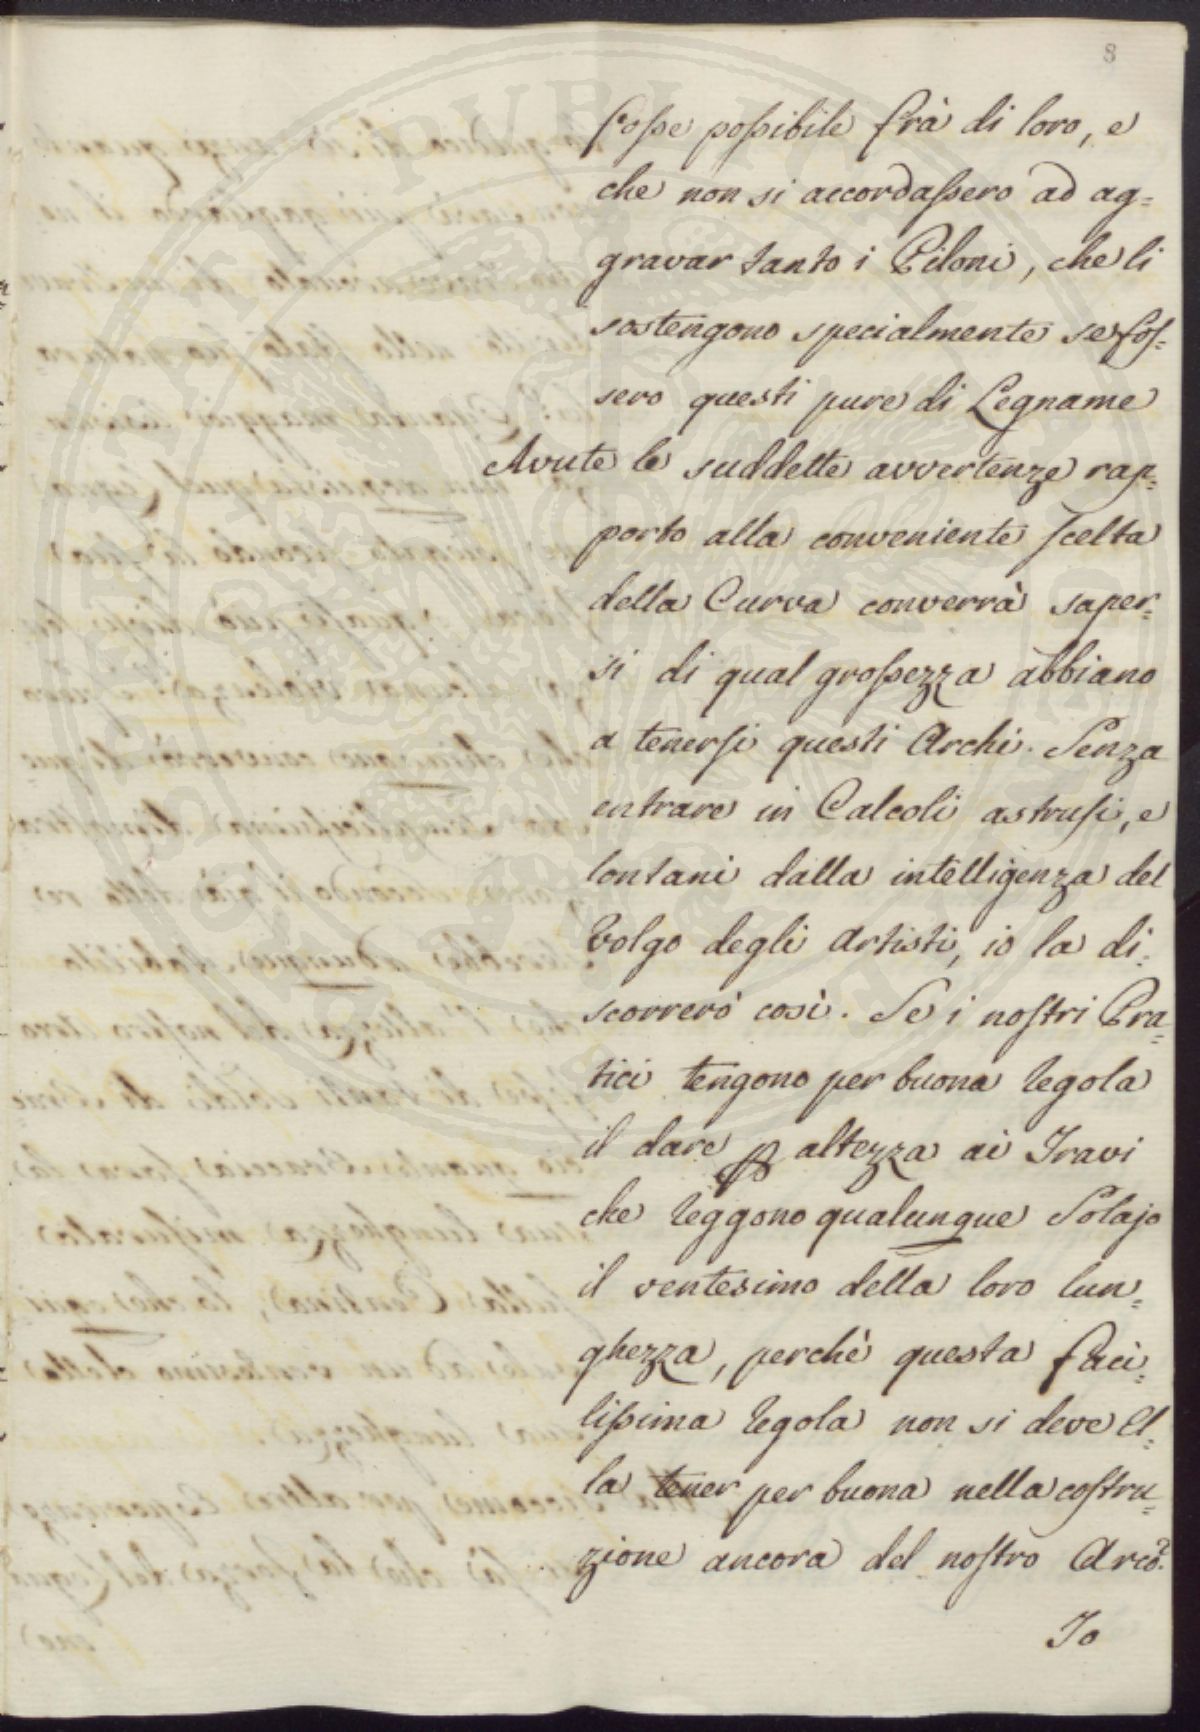 8
fosse possibile frà di loro, e
che non si accordassero ad ag=
gravar tanto i Piloni, che li
sostengono specialmente se fos=
sero questi pure di Legname
Avute le suddette avvertenze rap=
porto alla conveniente scelta
della Curva converrà saper=
si di qual grossezza abbiano
a tenersi questi Archi. Senza
entrare in Calcoli astrusi, e
lontani dalla intelligenza del
Volgo degli Artisti, io la di=
scorrerò così. Se i nostri Pra=
tici tengono per buona Regola
il dare p altezza ai Travi
che reggono qualunque Solajo
il ventesimo della loro lun=
ghezza, perchè questa faci=
lissima Regola non si deve El=
la tener per buona nella costru=
zione ancora del nostro Arco?
Io